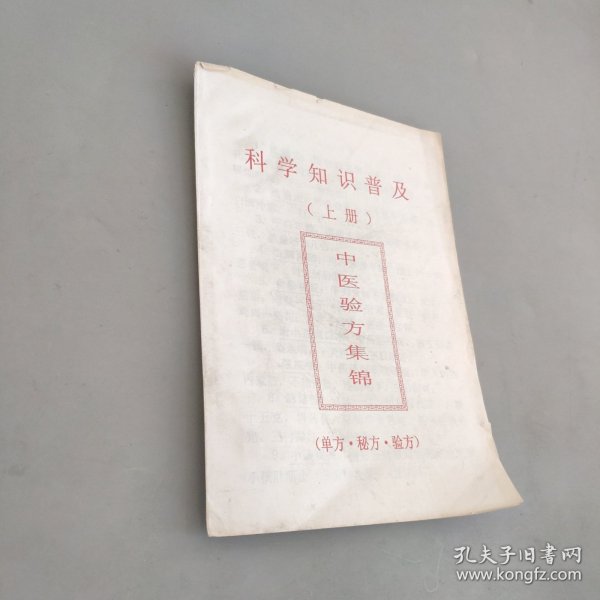 科学知识普及
（上册）
中医验方集锦
（单方·秘方·验方）
孔夫子旧书网
www.kongfz.com